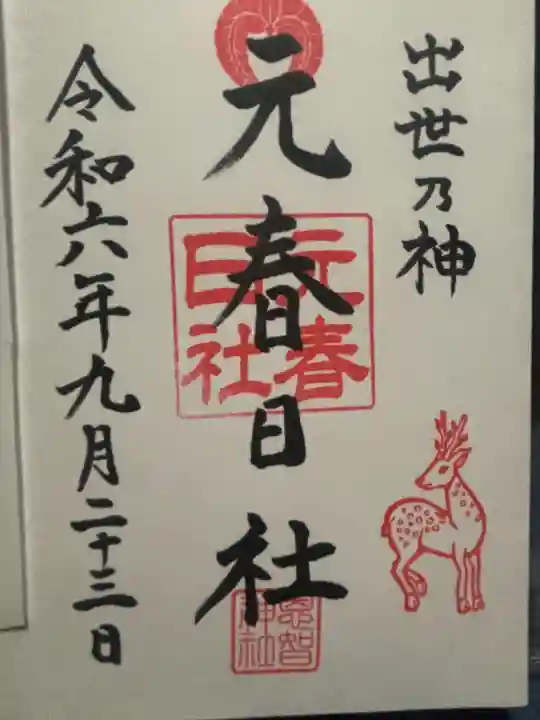 出世乃神
元春日社
元春日社
恩智神社
令和六年九月二十三日